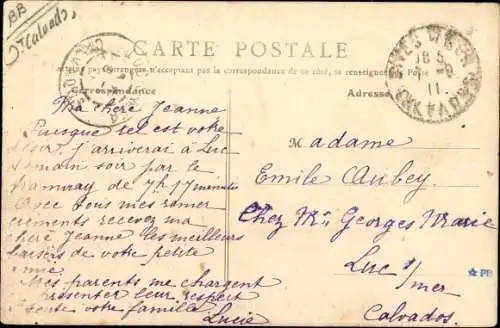 BB
Calvados
CARTE POSTALE
n'acceptant pas la correspondance de ce côté, se renseigner à la Poste
Correspondance
Adresse
Ma chère Jeanne
Puisque tel est votre
désir j'arriverai à Luc
demain soir par le
tramway de 7h 17 minutes
Avec tous mes remer
ciements recevez ma
chère Jeanne les meilleurs
baisers de votre petite
amie.
Mes parents me chargent
présenter leur respect
toute votre famille.
Lucie
Madame
Emile Aubey
Chez Mr. Georges Marie
Luc s/
mer
Calvados
CALVADOS
11